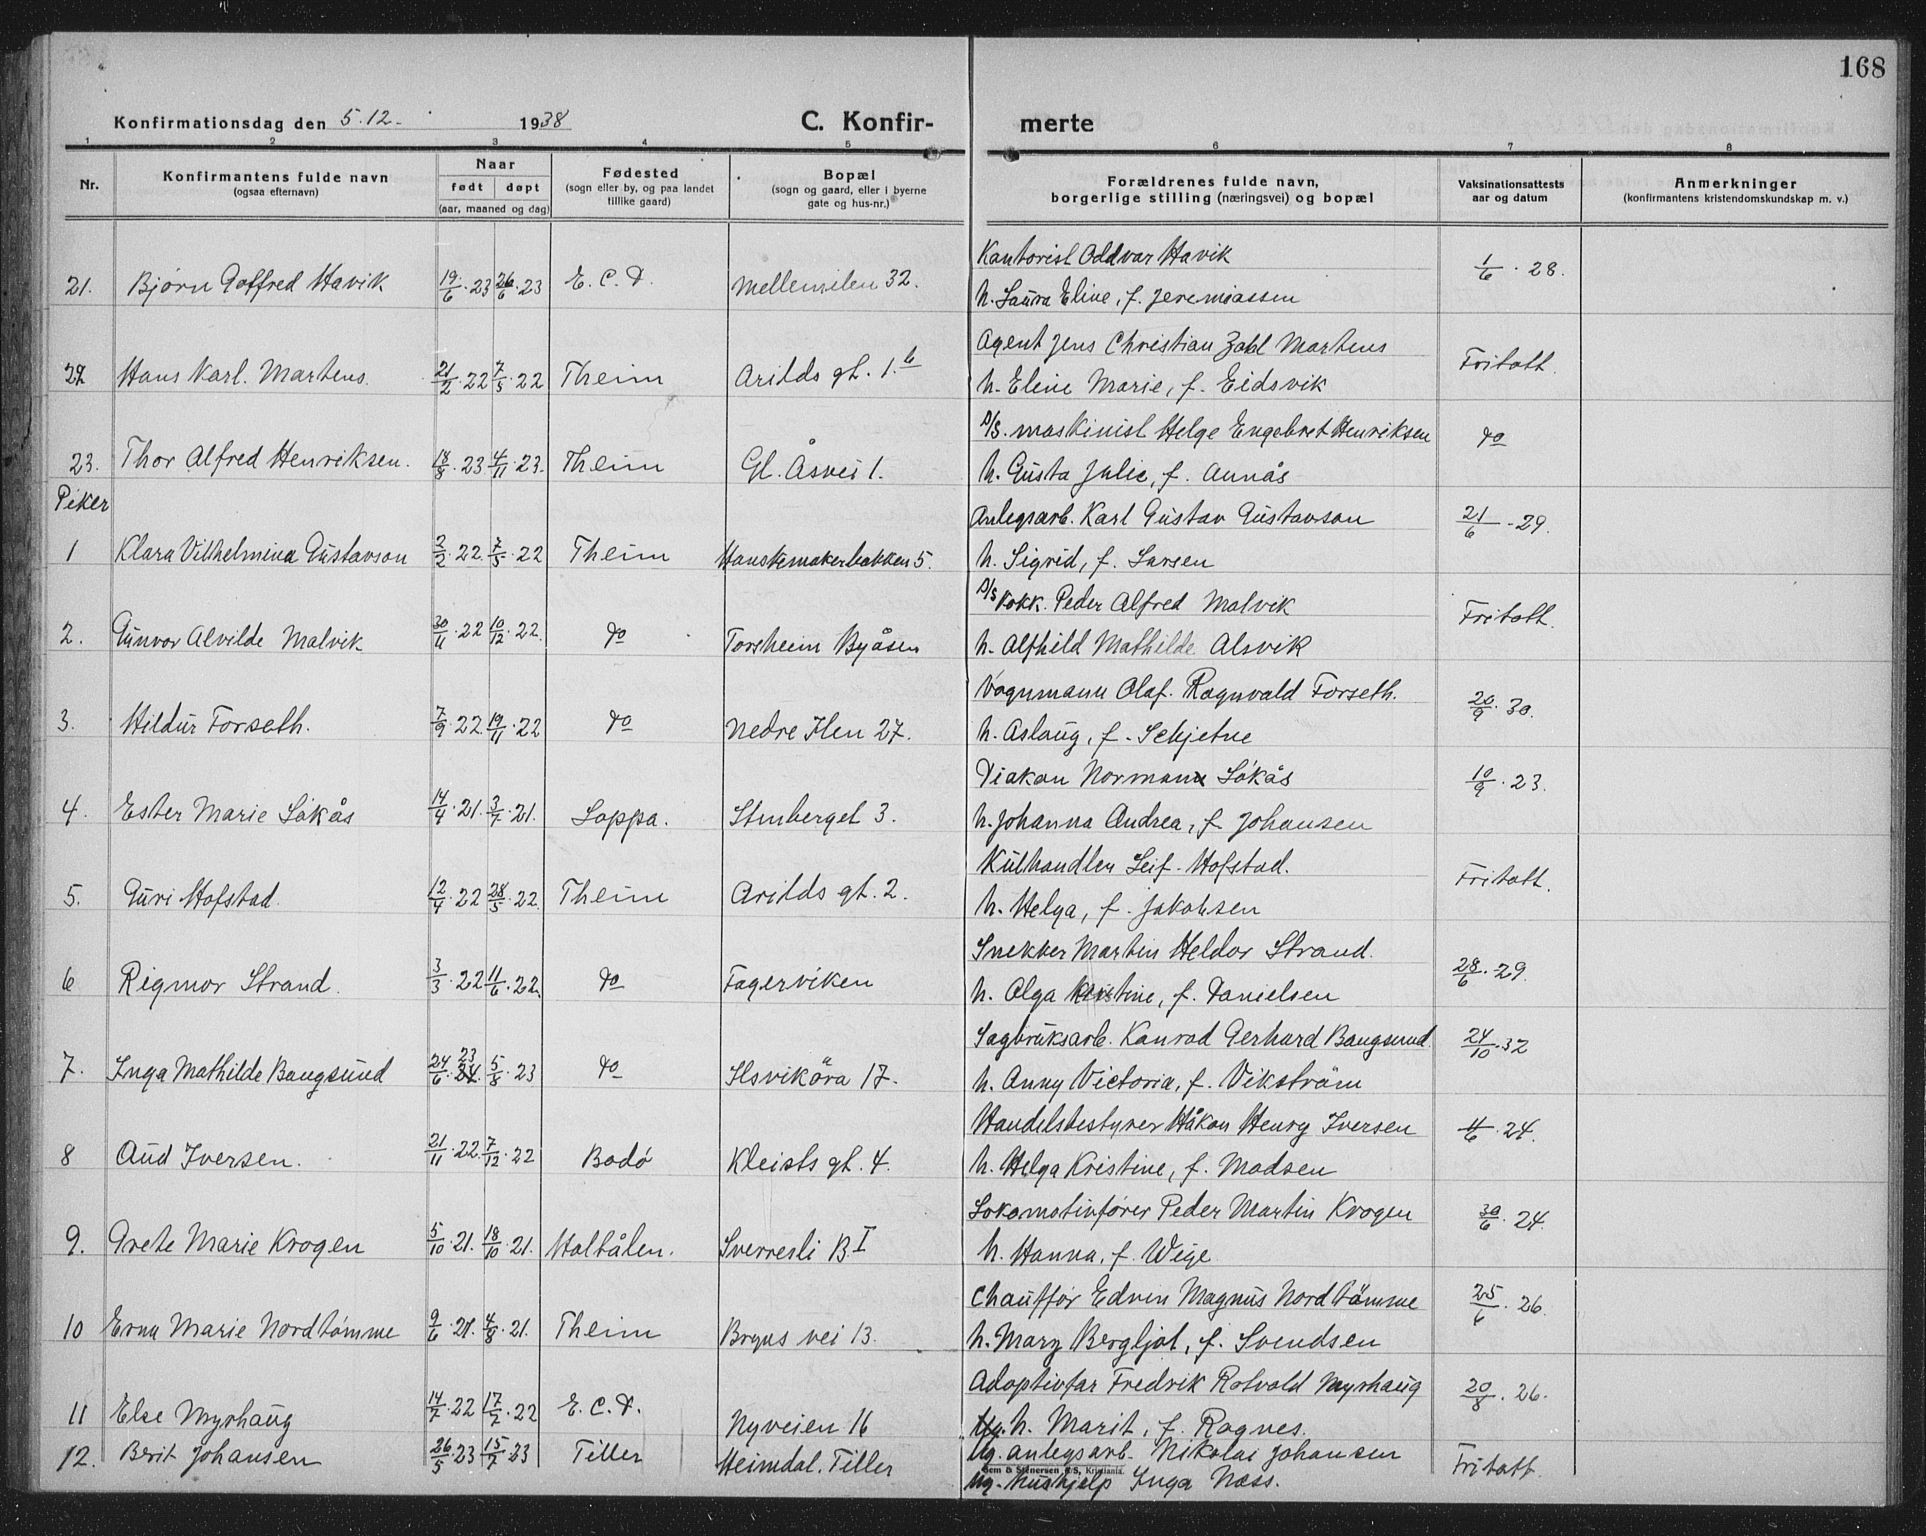 168
Konfirmationsdag den 5.12. 1938
C. Konfir- merte
1 2 3 4 5 6 7 8
Nr.
Konfirmantens fulde navn
(ogsaa efternavn)
Naar
født døpt
(aar, maaned og dag)
Fødested
(sogn eller by, og paa landet
tillike gaard)
Bopæl
(sogn og gaard, eller i byerne
gate og hus-nr.)
Forældrenes fulde navn,
borgerlige stilling (næringsvei) og bopæl
Vaksinationsattests
aar og datum
Anmerkninger
(konfirmantens kristendomskundskap m. v.)
Kantorist Oddvar Havik
21. Bjørn Gotfred Havik 19/6.23 26/6.23 E.C.D. Mellemilen 32. 1/6.28.
h. Laura Eline, f. Jeremiassen
Agent Jens Christian Zahl Martens
22 Hans Karl. Martens. 21/2.22 7/5.22 Theim Arilds gt. 1.b Fritatt.
h. Eline Marie, f. Eidsvik
D/S. maskinist Helge Engebret Henriksen
23. Thor Alfred Henriksen. 18/8.23 4/11.23. Theim Gl. Åsvei 1. do
h. Gusta Julie, f. Aunås
Piker
Anlegsarb. Karl Gustav Gustavson
1 Klara Vilhelmina Gustavson 2/2.22. 7/5.22 Theim Hanskemakerbakken 5. 21/6.29.
h. Sigrid, f. Larsen
D/S Kokk. Peder Alfred Malvik
2. Gunvor Alvilde Malvik 30/11.22 10/12.22. do Torsheim Byåsen Fritatt.
h. Alfhild Mathilde Alsvik
Vognmann Olaf. Ragnvald Forseth.
3. Hildur Forseth. 7/9.22. 19/11.22 do Nedre Ilen 27. 20/9.30.
h. Aslaug, f. Schjetne
Diakon Normann Løkås
4. Ester Marie Løkås 14/4.21. 3/7.21. Loppa. Stenberget 3. 10/9.23.
h. Johanna Andrea, f. Johansen
Kulhandler Leif. Hofstad.
5. Guri Hofstad. 12/4.22 28/5.22. Theim Arilds gt. 2. Fritatt.
h. Helga, f. Jakobsen
Snekker Martin Heldor Strand.
6 Rigmor Strand. 3/3.22 11/6.22. do Fagerviken 28/6.29.
h. Olga Kristine, f. Danielsen
Sagbruksarb. Konrad Gerhard Bangsund.
7. Inga Mathilde Bangsund 24/6.23 5/8.23 do Ilsvikøra 17. 24/10.32
h. Anny Victoria, f. Vikstrøm
Handelsbestyrer Håkon Henry Iversen
8 Aud Iversen. 21/11.22. 7/12.22 Bodø Kleists gt. 4. 4/6.24.
h. Helga Kristine, f. Madsen
Lokomotivfører Peder Martin Krogen
9. Grete Marie Krogen 5/10.21. 18/10.21. Holtålen. Sverresli B I 30/6.24.
h. Hanna, f. Wige
Chauffør Edvin Magnus Nordtømme
10 Erna Marie Nordtømme 9/6.21. 4/8.21. Theim Bryns vei 13. 25/6.26.
h. Mary Bergljot, f. Svendsen
Adoptivfar Fredrik Rotvold Myrhaug
11 Else Myrhaug 14/7.22 17/7.22 E.C.D. Nyveien 16 20/8.26.
h. Marit, f. Ragnes.
12. Berit Johansen 26/5.23 15/7.23 Tiller Heimdal. Tiller Ug. anlegsarb. Nikolai Johansen Fritatt.
Sem & Stenersen A/S, Kristiania.
Ug. hushjelp Inga Næss.